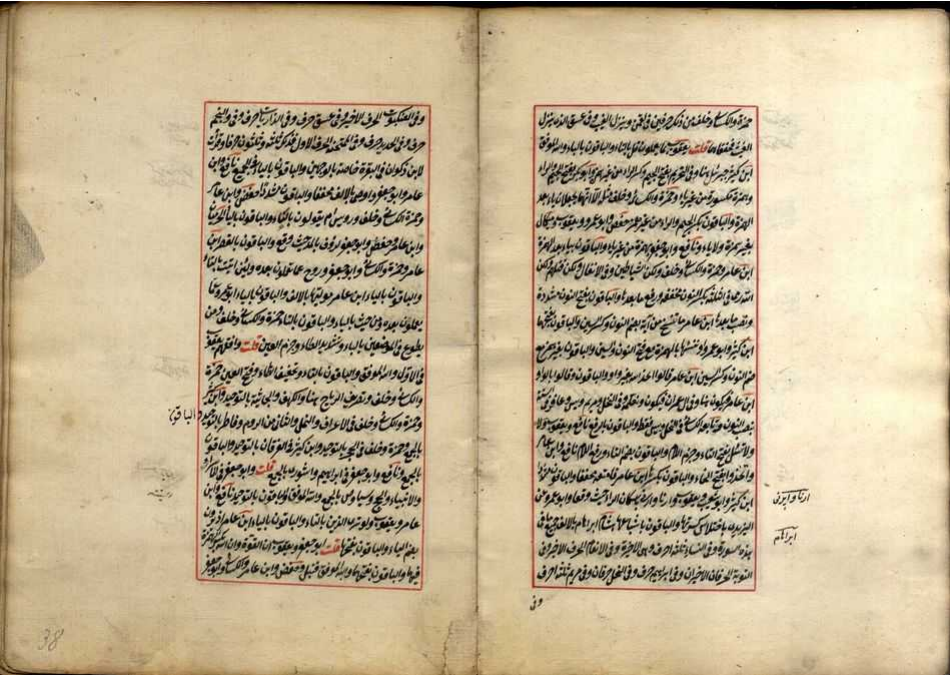 حمزة والكسائي وخلف من ذكر حرفين في لقمن وينزل الغيث وفي عسق الذي ينزل
الغيث مخففا قلت يعقوب بما يعملون قل بالتاء والباقون بالياء والله الموفق
ابن كثير جبريل هنا وفي التحريم بفتح الجيم وكسر الراء من غير همز وابو بكر بفتح الجيم والراء
وهمزة مكسورة من غير ياء وحمزة والكسائي وخلف مثله الا انهما يجعلان ياء بعد
الهمزة والباقون بكسر الجيم والراء من غير همز حفص وابو عمرو ويعقوب وميكال
بغير همزة ولا ياء ونافع وابو جعفر بهمزة من غير ياء والباقون بياء بعد الهمزة
ابن عامر وحمزة والكسائي وخلف ولكن الشياطين وفي الانفال ولكن الله قتلهم ولكن
الله رمى في الثلثة بكسر النون مخففة ورفع ما بعدها والباقون بفتح النون مشددة
ونصب ما بعدها ابن عامر ما ننسخ من آية بضم النون وكسر السين والباقون بفتحها
ابن كثير وابو عمرو او ننسئها بالهمزة مع فتح النون والسين والباقون بغير همز مع
ضم النون وكسر السين ابن عامر قالوا اتخذ الله بغير واو والباقون وقالوا بالواو
ابن عامر فيكون هنا وفي آل عمران فيكون ونعلمه وفي النحل ومريم ويس وغافر في الستة
بنصب النون وتابعه الكسائي في النحل ويس فقط والباقون بالرفع نافع ويعقوب ولا
ولا تسئل بفتح التاء وجزم اللام والباقون بضم التاء ورفع اللام نافع وابن عامر
واتخذوا بفتح الخاء والباقون بكسرها ابن عامر فامتعه مخففا والباقون مشددا
ابن كثير وابو شعيب ويعقوب وارنا وارني باسكان الراء حيث وقعا وابو عمرو من
اليزيدي باختلاس كسرتها والباقون باشباعها هشام ابراهام بالالف جميع ما في
هذه السورة وفي النساء ثلثة احرف وهي الاخيرة وفي الانعام الحرف الاخير وفي
التوبة الحرفان الاخيران وفي ابراهيم حرف وفي النحل حرفان وفي مريم ثلثة احرف
وفي
ارنا وارني
ابراهم
وفي العنكبوت الحرف الاخير وفي عسق حرف وفي الذاريات حرف وفي والنجم
حرف وفي الحديد حرف وفي الممتحنة الحرف الاول فذلك ثلثة وثلثون حرفا وقرأت
لابن ذكوان في البقرة خاصة بالوجهين والباقون بالياء في الجميع نافع وابن
عامر وابو جعفر واوصى بالالف مخففا والباقون مشددا حفص وابن عامر
وحمزة والكسائي وخلف ورويس ام يقولون بالتاء والباقون بالياء الحرميان
وابن عامر وحفص وابو جعفر لرؤف بالمد حيث وقع والباقون بالقصر ابن
عامر وحمزة والكسائي وابو جعفر وروح عما تعملون بعده ولئن اتيت بالتاء
والباقون بالياء ابن عامر مولاها بالالف والباقون بالياء ابو عمرو عما
يعملون بعده ومن حيث بالياء والباقون بالتاء حمزة والكسائي وخلف ومن
يطوع في الموضعين بالياء وتشديد الطاء وجزم العين قلت وافقهم يعقوب
في الاول والله الموفق والباقون بالتاء وتخفيف الطاء وفتح العين حمزة
والكسائي وخلف وتصريف الرياح هنا والكهف والجاثية بالتوحيد وابن كثير
وحمزة والكسائي وخلف في الاعراف والنمل والثاني من الروم وفاطر بالتوحيد والباقون
بالجمع وحمزة وخلف في الحجر بالتوحيد وابن كثير في الفرقان بالتوحيد والباقون
بالجمع ونافع وابو جعفر في ابراهيم والشورى بالجمع قلت وابو جعفر في الاسراء
والانبياء والحج وسبا وص بالجمع والله الموفق والباقون بالتوحيد نافع وابن
عامر ويعقوب ولو ترى الذين بالتاء والباقون بالياء ابن عامر اذ يرون
بضم الياء والباقون بفتحها قلت ابو جعفر ويعقوب ان القوة وان الله بكسر الهمزة
فيهما والباقون بفتحهما والله الموفق قنبل وحفص وابن عامر والكسائي وابو جعفر
38